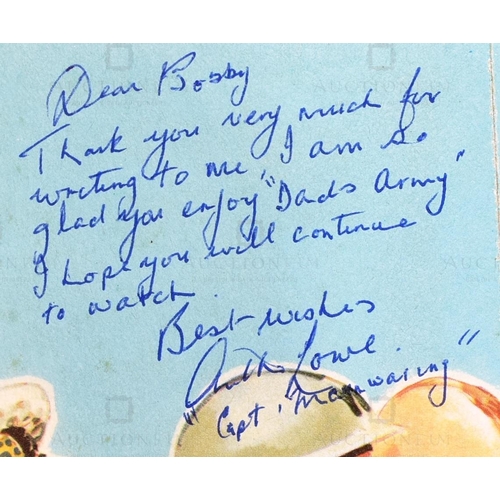 Dear Bobby
Thank you very much for
writing to me, I am so
glad you enjoy "Dads Army"
I hope you will continue
to watch
Best wishes
Arthur Lowe.
"Capt. Mainwaring"